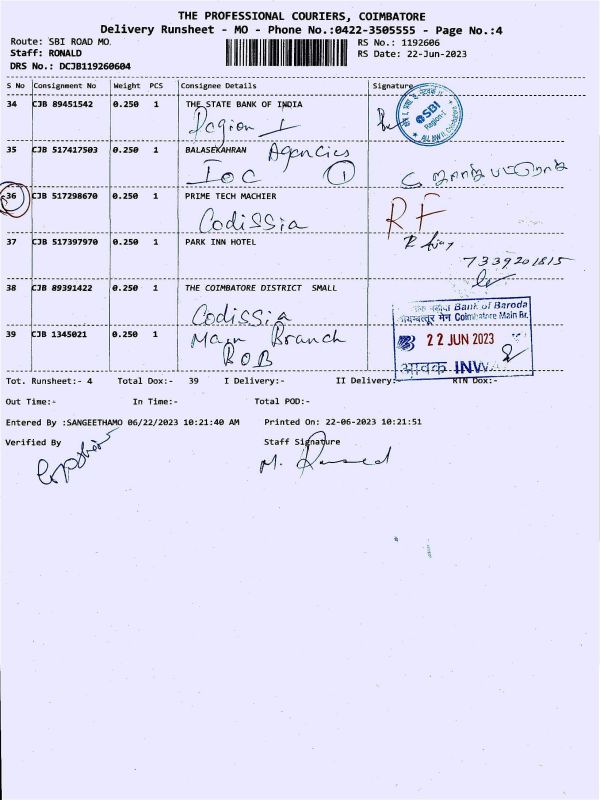 THE PROFESSIONAL COURIERS, COIMBATORE
Delivery Runsheet - MO - Phone No.:0422-3505555 - Page No.:4
Route: SBI ROAD MO. RS No.: 1192606
Staff: RONALD RS Date: 22-Jun-2023
DRS No.: DCJB119260604
S No Consignment No Weight PCS Consignee Details Signature
34 CJB 89451542 0.250 1 THE STATE BANK OF INDIA
Region I
SBI
Region-I
35 CJB 517417503 0.250 1 BALASEKAHRAN Agencies
IOC 1
36 CJB 517298670 0.250 1 PRIME TECH MACHIER
Codissia RF
37 CJB 517397970 0.250 1 PARK INN HOTEL
7339201815
38 CJB 89391422 0.250 1 THE COIMBATORE DISTRICT SMALL
Codissia
Bank of Baroda
Coimbatore Main Br.
39 CJB 1345021 0.250 1 Main Branch
BOB
22 JUN 2023
आवक INW
Tot. Runsheet:- 4 Total Dox:- 39 I Delivery:- II Delivery:- RTN Dox:-
Out Time:- In Time:- Total POD:-
Entered By :SANGEETHAMO 06/22/2023 10:21:40 AM Printed On: 22-06-2023 10:21:51
Verified By Staff Signature